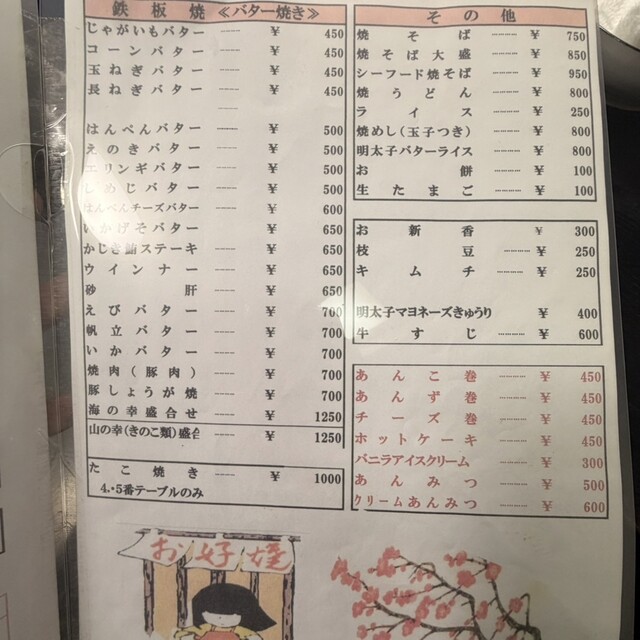 鉄板焼 ≪バター焼き≫
じゃがいもバター ------ ¥ 450
コーンバター ------ ¥ 450
玉ねぎバター ------ ¥ 450
長ねぎバター ------ ¥ 450
はんぺんバター ------ ¥ 500
えのきバター ------ ¥ 500
エリンギバター ------ ¥ 500
しめじバター ------ ¥ 500
はんぺんチーズバター ------ ¥ 600
いかげそバター ------ ¥ 650
かじき鮪ステーキ ------ ¥ 650
ウインナー ------ ¥ 650
砂肝 ------ ¥ 650
えびバター ------ ¥ 700
帆立バター ------ ¥ 700
いかバター ------ ¥ 700
焼肉(豚肉) ------ ¥ 700
豚しょうが焼 ------ ¥ 700
海の幸盛合せ ------ ¥ 1250
山の幸(きのこ類)盛合 ------ ¥ 1250
たこ焼き ------ ¥ 1000
4.・5番テーブルのみ
その他
焼そば ………… ¥ 750
焼そば大盛 ………… ¥ 850
シーフード焼そば ………… ¥ 950
焼うどん ………… ¥ 800
ライス ………… ¥ 250
焼めし(玉子つき) ………… ¥ 800
明太子バターライス ………… ¥ 800
お餅 ………… ¥ 100
生たまご ………… ¥ 100
お新香 ¥ 300
枝豆 ………… ¥ 250
キムチ ………… ¥ 250
明太子マヨネーズきゅうり ¥ 400
牛すじ ………… ¥ 600
あんこ巻 ………… ¥ 450
あんず巻 ………… ¥ 450
チーズ巻 ………… ¥ 450
ホットケーキ ………… ¥ 450
バニラアイスクリーム ………… ¥ 300
あんみつ ………… ¥ 500
クリームあんみつ ………… ¥ 600
お好焼